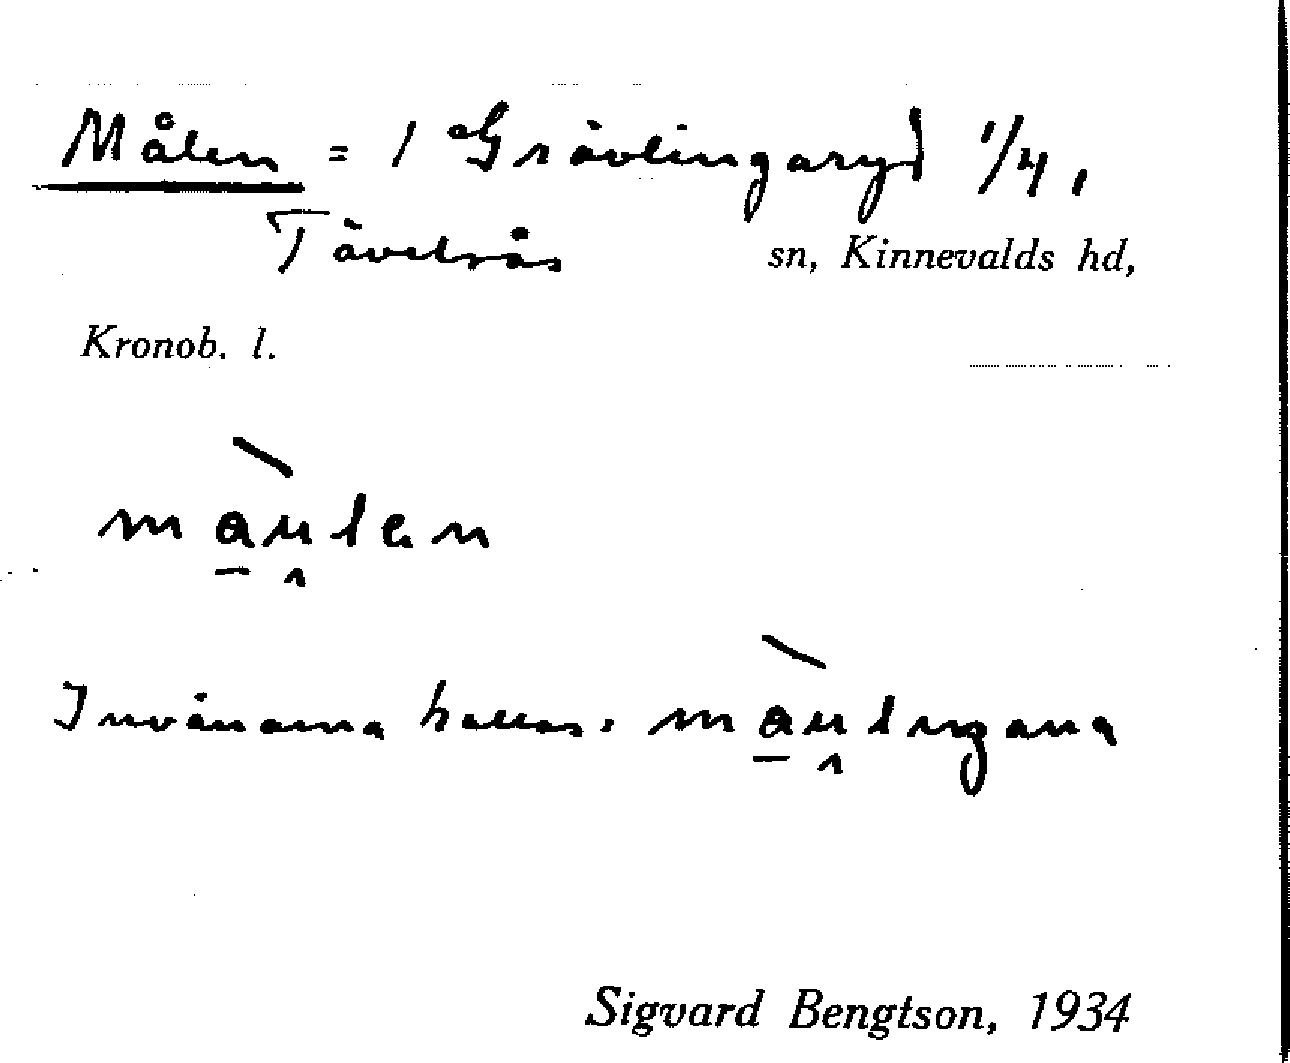 Målen = 1 Grävlingaryd 1/4,
Tävelsås sn, Kinnevalds hd,
Kronob. l.
màu̯len
Invånarna kallas: màu̯lngana
Sigvard Bengtson, 1934